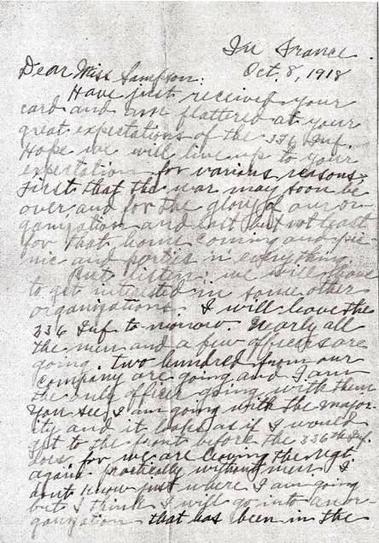 In France
Oct. 8, 1918
Dear Miss Sampson:
Have just received your
card and am flattered at your
great expectations of the 336 Inf.
Hope we will live up to your
expectation for various reasons,
first that the war may soon be
over, and for the glory of our or-
ganization and last but not least
for that home coming and pic-
nic and parties n everything.
But listen: we will have
to get interested in some other
organizations. I will leave the
336 Inf to-morrow. Nearly all
the men and a few officers are
going. two hundred from our
company are going and I am
the only officer going with them
You see, I am going with the major-
ity and it looks as if I would
get to the front before the 336th Inf.
does, for we are leaving the regt.
again practically without men. I
dont know just where I am going
but I think I will go into an or-
ganization that has been in the